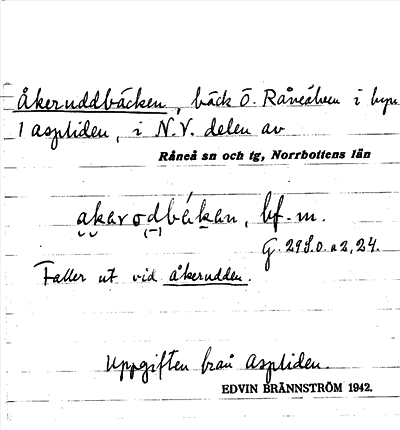 Åkeruddbäcken, bäck Ö. Råneälven i byn
Aspliden, i N.V. delen av
Råneå sn och tg, Norrbottens län
akarodbäkan, bf. m.
G. 29
Faller ut vid åkerudden.
Uppgiften från Aspliden.
EDVIN BRÄNNSTRÖM 1942.